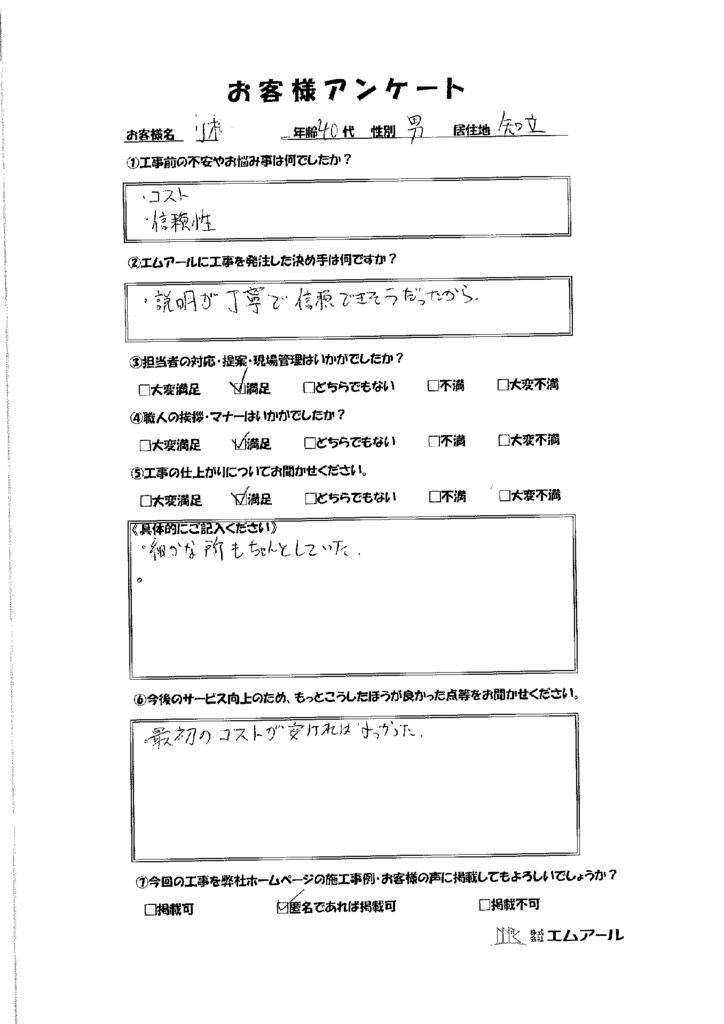 お客様アンケート
お客様名 年齢 40代 性別 男 居住地 知立
①工事前の不安やお悩み事は何でしたか？
・コスト
・信頼性
②エムアールに工事を発注した決め手は何ですか？
・説明が丁寧で信頼できそうだったから.
③担当者の対応・提案・現場管理はいかがでしたか？
□大変満足 ☑満足 □どちらでもない □不満 □大変不満
④職人の挨拶・マナーはいかがでしたか？
□大変満足 ☑満足 □どちらでもない □不満 □大変不満
⑤工事の仕上がりについてお聞かせください。
□大変満足 ☑満足 □どちらでもない □不満 □大変不満
《具体的にご記入ください》
・細かな所もちゃんとしていた.
⑥今後のサービス向上のため、もっとこうしたほうが良かった点等をお聞かせください。
・最初のコストが安ければ
⑦今回の工事を弊社ホームページの施工事例・お客様の声に掲載してもよろしいでしょうか？
□掲載可 ☑匿名であれば掲載可 □掲載不可
株式会社 エムアール